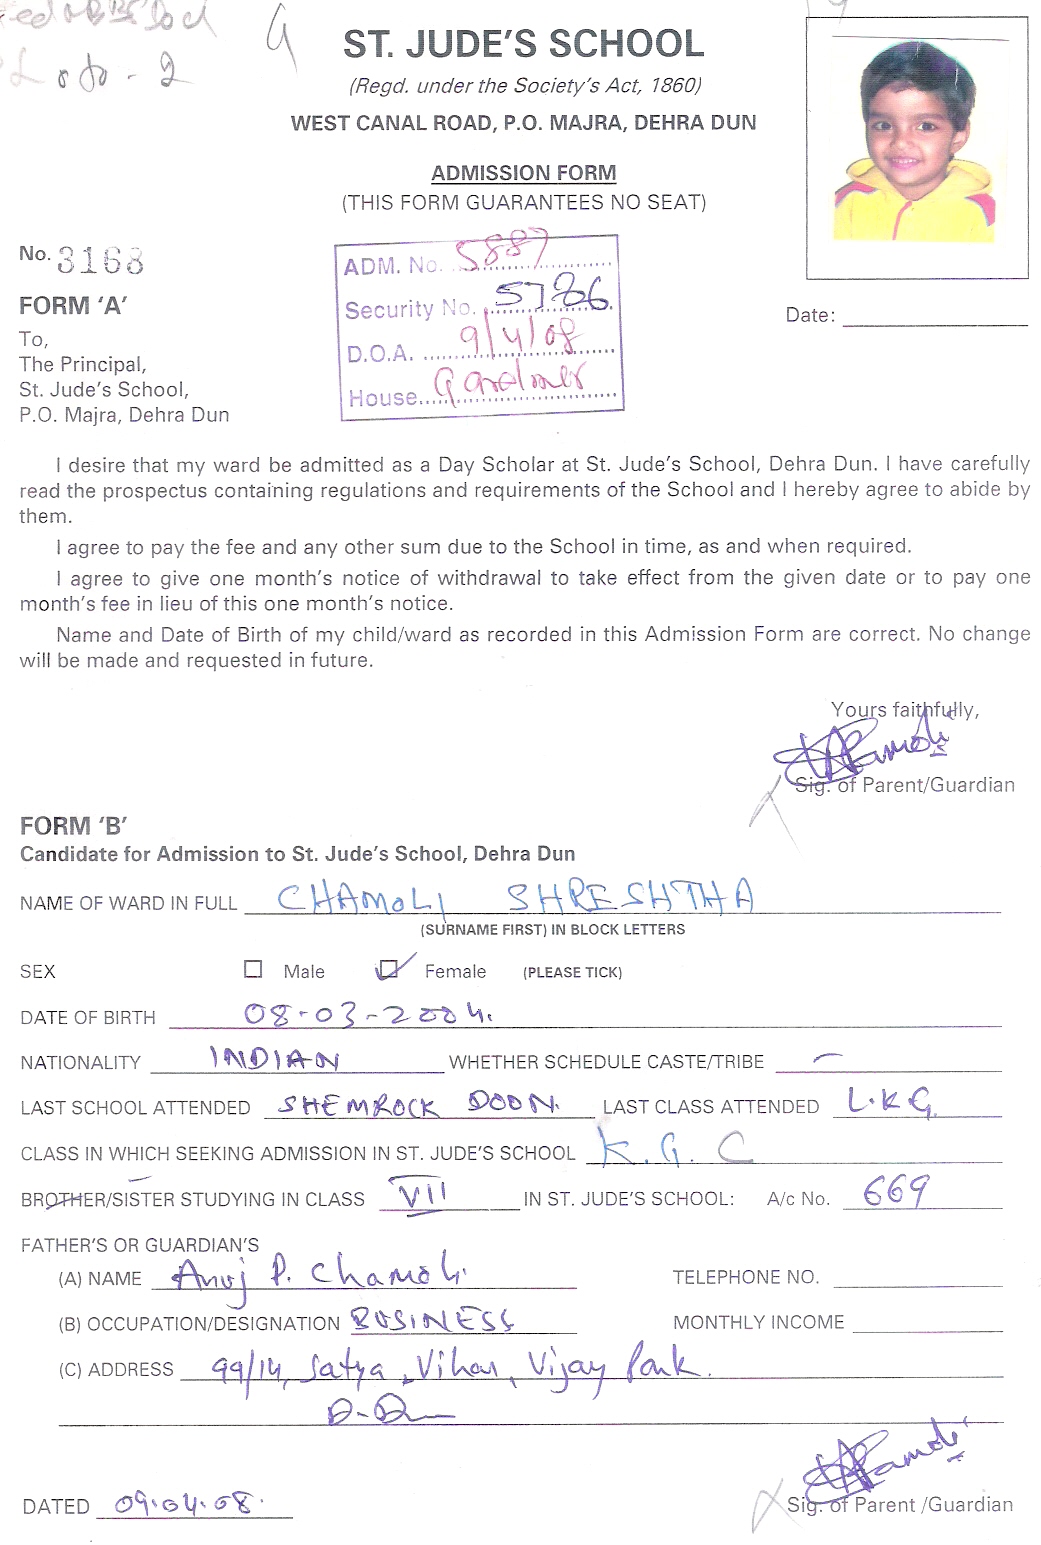 ST. JUDE'S SCHOOL
(Regd. under the Society's Act, 1860)
WEST CANAL ROAD, P.O. MAJRA, DEHRA DUN
ADMISSION FORM
(THIS FORM GUARANTEES NO SEAT)
No. 3168
ADM. No. 5887
Security No. 5786
D.O.A. 9/4/08
House Gardner
Date:
FORM 'A'
To,
The Principal,
St. Jude's School,
P.O. Majra, Dehra Dun
I desire that my ward be admitted as a Day Scholar at St. Jude's School, Dehra Dun. I have carefully
read the prospectus containing regulations and requirements of the School and I hereby agree to abide by
them.
I agree to pay the fee and any other sum due to the School in time, as and when required.
I agree to give one month's notice of withdrawal to take effect from the given date or to pay one
month's fee in lieu of this one month's notice.
Name and Date of Birth of my child/ward as recorded in this Admission Form are correct. No change
will be made and requested in future.
Yours faithfully,
Sig. of Parent/Guardian
FORM 'B'
Candidate for Admission to St. Jude's School, Dehra Dun
NAME OF WARD IN FULL CHAMOLI SHRESHTHA
(SURNAME FIRST) IN BLOCK LETTERS
SEX Male Female (PLEASE TICK)
DATE OF BIRTH 08-03-2004.
NATIONALITY INDIAN WHETHER SCHEDULE CASTE/TRIBE —
LAST SCHOOL ATTENDED SHEMROCK DOON. LAST CLASS ATTENDED L.K.G.
CLASS IN WHICH SEEKING ADMISSION IN ST. JUDE'S SCHOOL K.G. C
BROTHER/SISTER STUDYING IN CLASS VII IN ST. JUDE'S SCHOOL: A/c No. 669
FATHER'S OR GUARDIAN'S
(A) NAME Anuj P. Chamoli TELEPHONE NO.
(B) OCCUPATION/DESIGNATION BUSINESS MONTHLY INCOME
(C) ADDRESS 99/14, Satya Vihar, Vijay Park.
D-Dun
DATED 09.04.08.
Sig. of Parent /Guardian